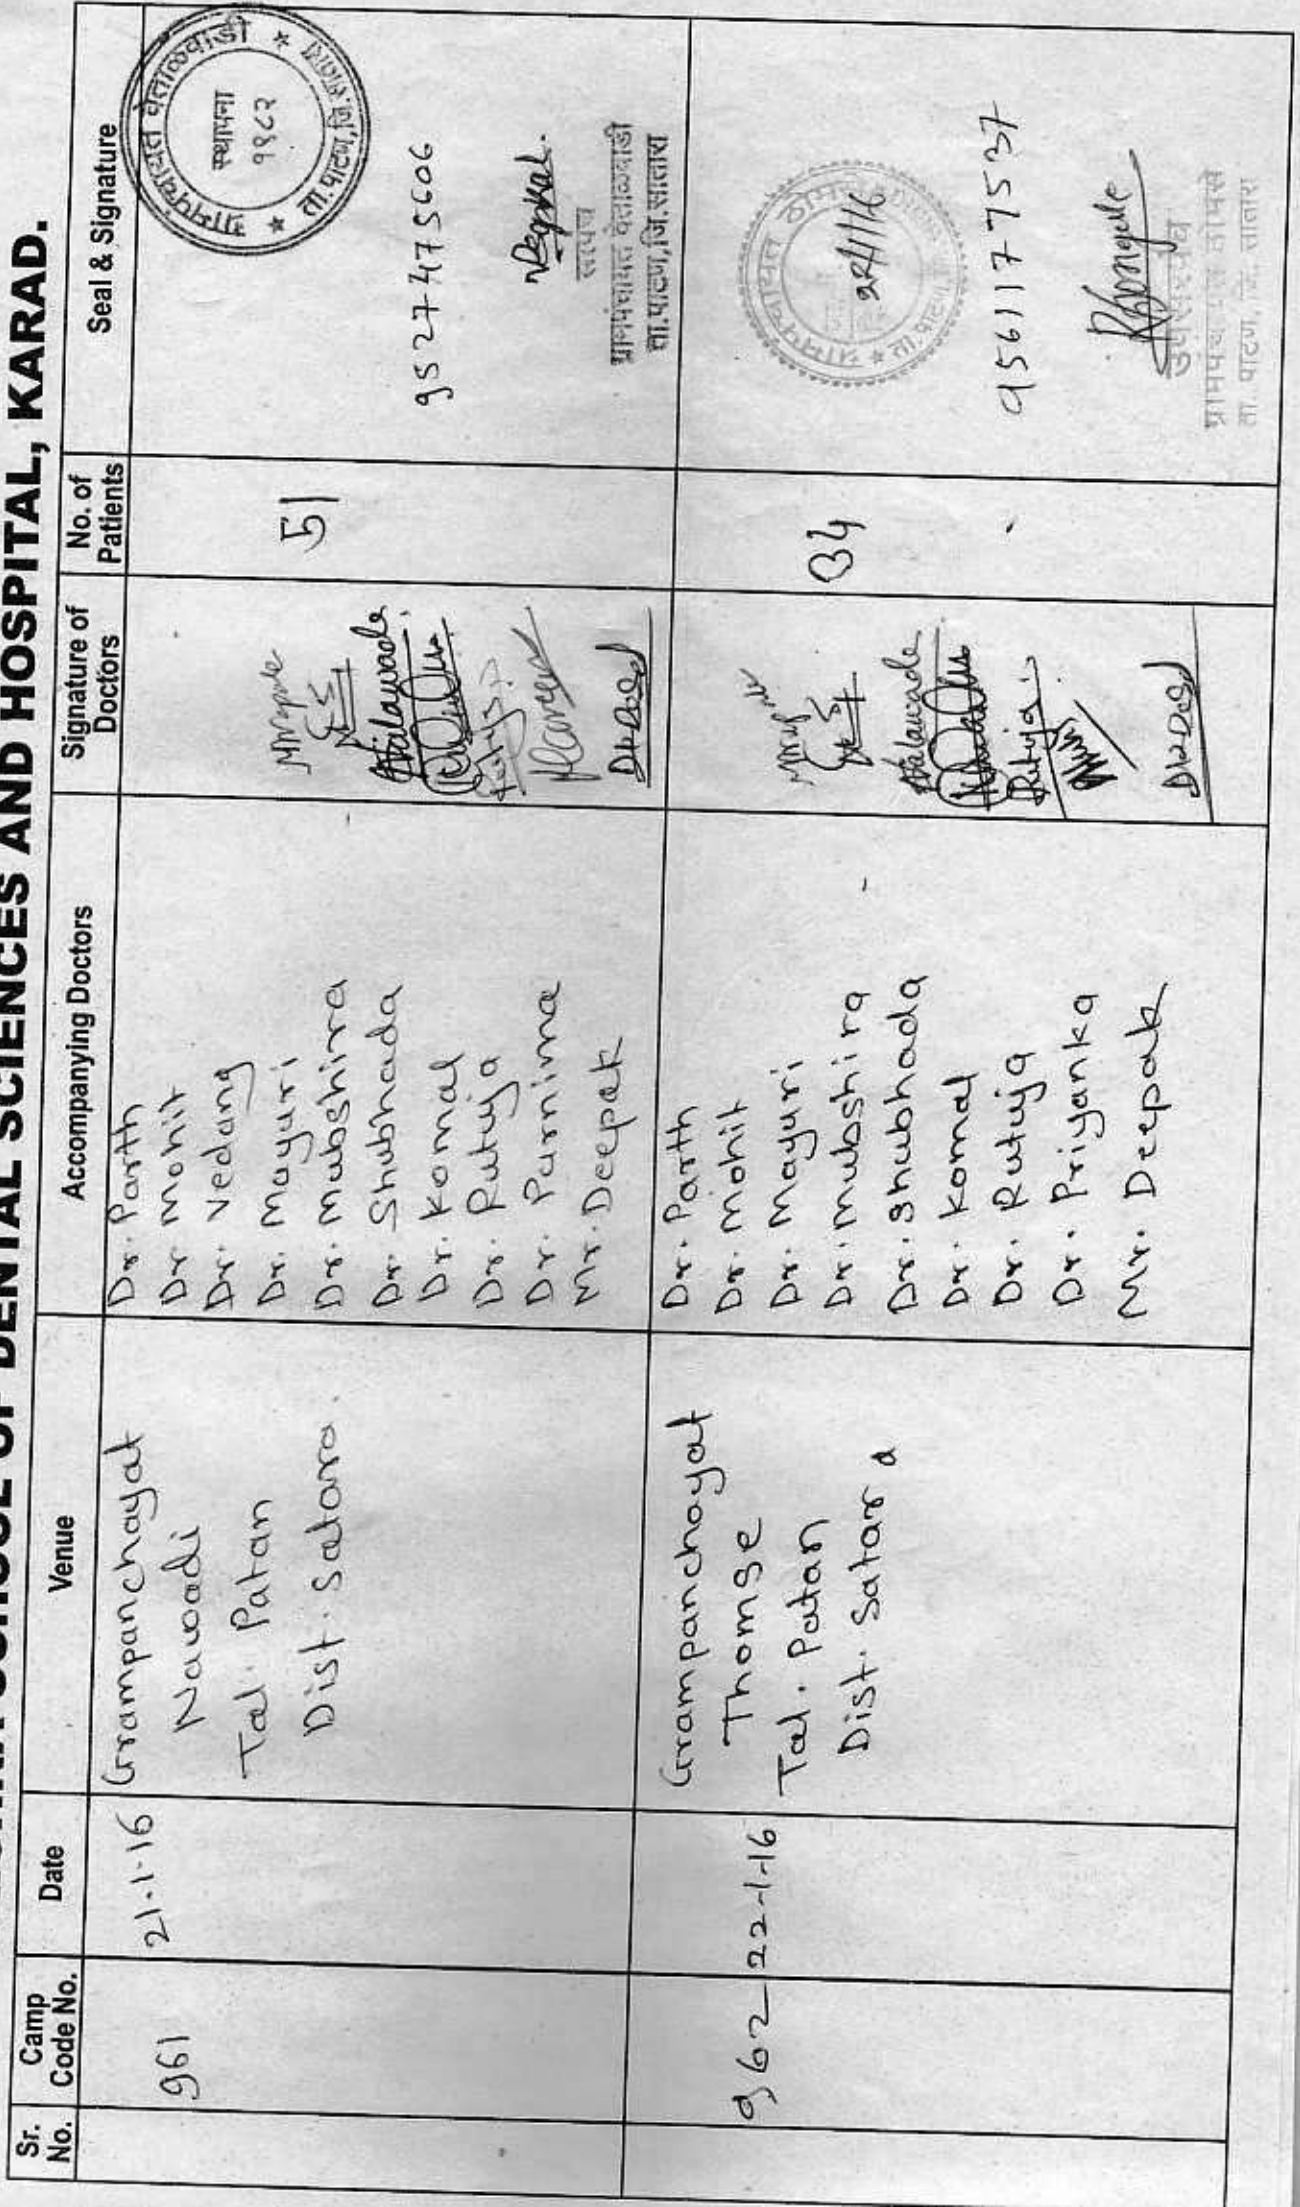 SCHOOL OF DENTAL SCIENCES AND HOSPITAL, KARAD.
Sr. No.
Camp Code No.
Date
Venue
Accompanying Doctors
Signature of Doctors
No. of Patients
Seal & Signature
961
21.1.16
Grampanchayat
Nawadi
Tal. Patan
Dist. Satara.
Dr. Parth
Dr. Mohit
Dr. Vedang
Dr. Mayuri
Dr. Mubshira
Dr. Shubhada
Dr. Komal
Dr. Rutuja
Dr. Purnima
Mr. Deepak
51
ग्रामपंचायत वेताळवाडी
ता.पाटण,जि.सातारा
स्थापना
१९८२
9527475606
सरपंच
ग्रामपंचायत वेताळवाडी
ता.पाटण,जि.सातारा
962
22-1-16
Grampanchayat
Thomse
Tal. Patan
Dist. Satara
Dr. Parth
Dr. Mohit
Dr. Mayuri
Dr. Mubshira
Dr. Shubhada
Dr. Komal
Dr. Rutuja
Dr. Priyanka
Mr. Deepak
Rutuja
34
ग्रामपंचायत ठोमसे
9561177537
उपसरपंच
ता. पाटण, जि. सातारा